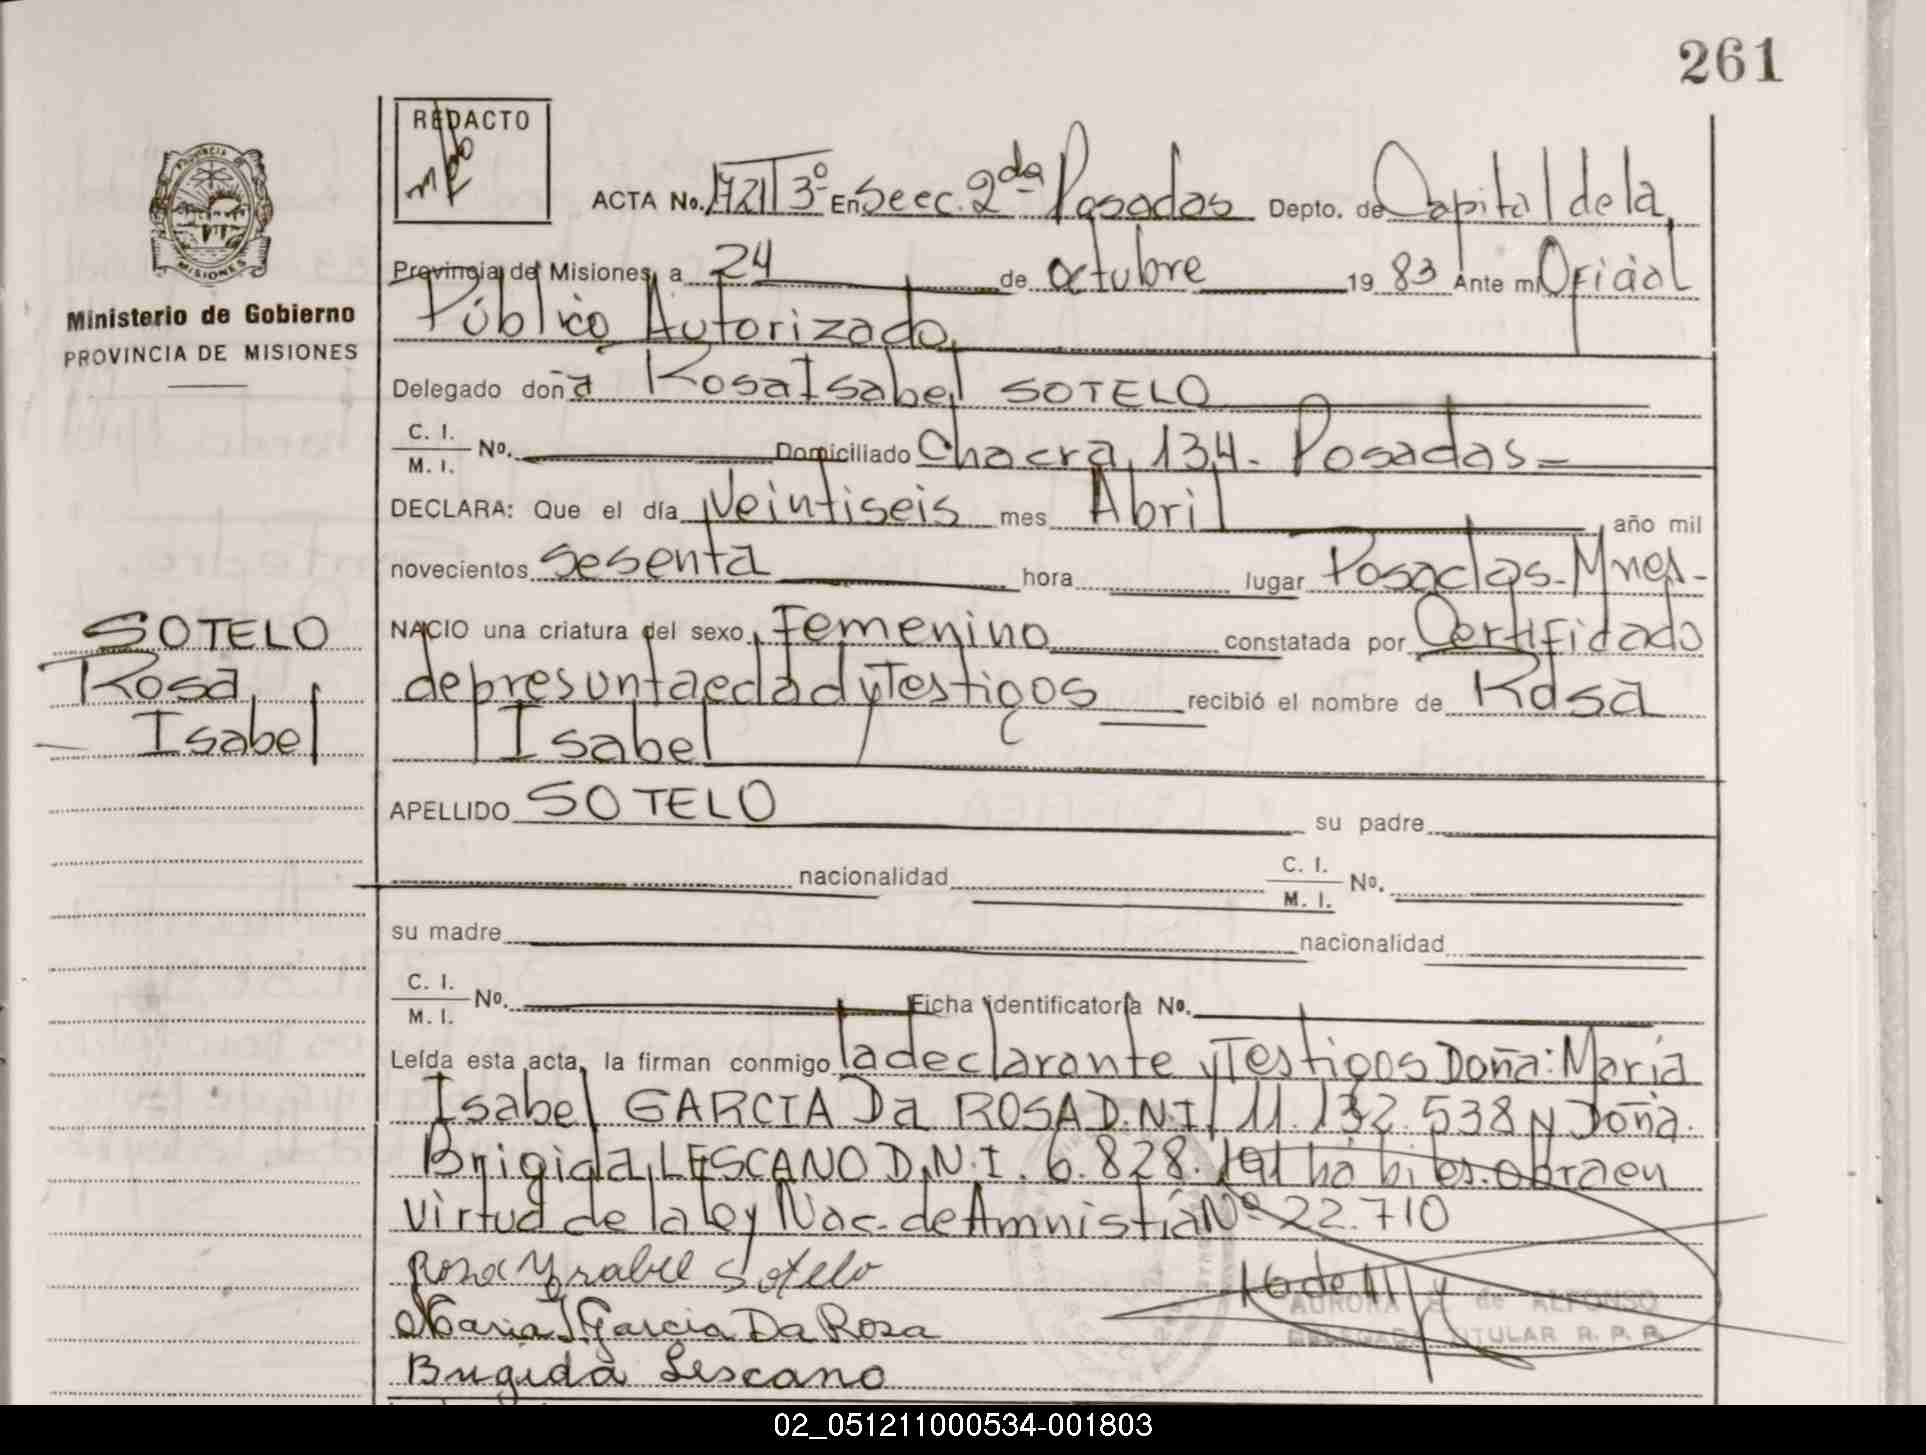 261
REDACTO
ACTA No. 1721 T 3º En Secc. 2da Posadas Depto. de Capital de la
PROVINCIA
MISIONES
Provincia de Misiones, a 24 de octubre 1983 Ante mi Oficial
Ministerio de Gobierno
PROVINCIA DE MISIONES
Público Autorizado
Delegado doña Rosa Isabel SOTELO
C. I.
M. I. No. Domiciliado Chacra 134 - Posadas -
DECLARA: Que el día Veintiseis mes Abril año mil
novecientos sesenta hora lugar Posadas - Mnes -
NACIO una criatura del sexo Femenino constatada por Certificado
SOTELO
Rosa
Isabel
de presunta edad y Testigos recibió el nombre de Rosa
Isabel
APELLIDO SOTELO su padre
nacionalidad C. I.
M. I. No.
su madre nacionalidad
C. I.
M. I. No. Ficha identificatoria No.
Leída esta acta, la firman conmigo la declarante y Testigos Doña: María
Isabel GARCIA Da ROSA D.N.I. 11.132.538 y Doña.
Brigida LESCANO D.N.I. 6.828.191 hábiles. obra en
virtud de la ley Nac. de Amnistía Nº 22.710
Rosa Ysabel Sotelo
Maria I Garcia Da Rosa
AURORA de ALFONSO
DELEGADA TITULAR R. P. P.
Brigida Lescano
02_051211000534-001803